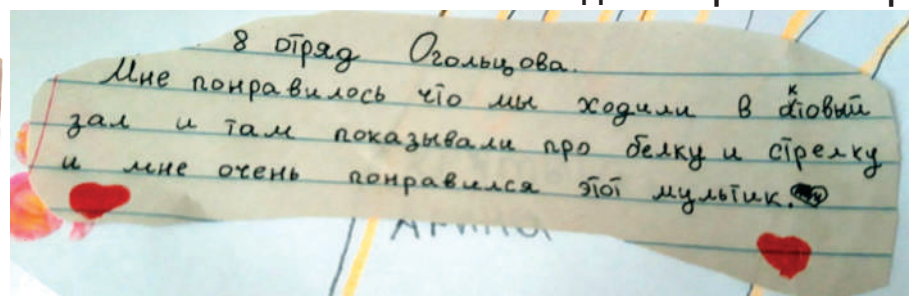 8 отряд Огольцова.
Мне понравилось что мы ходили в актовый
зал и там показывали про белку и стрелку
и мне очень понравился этот мультик.